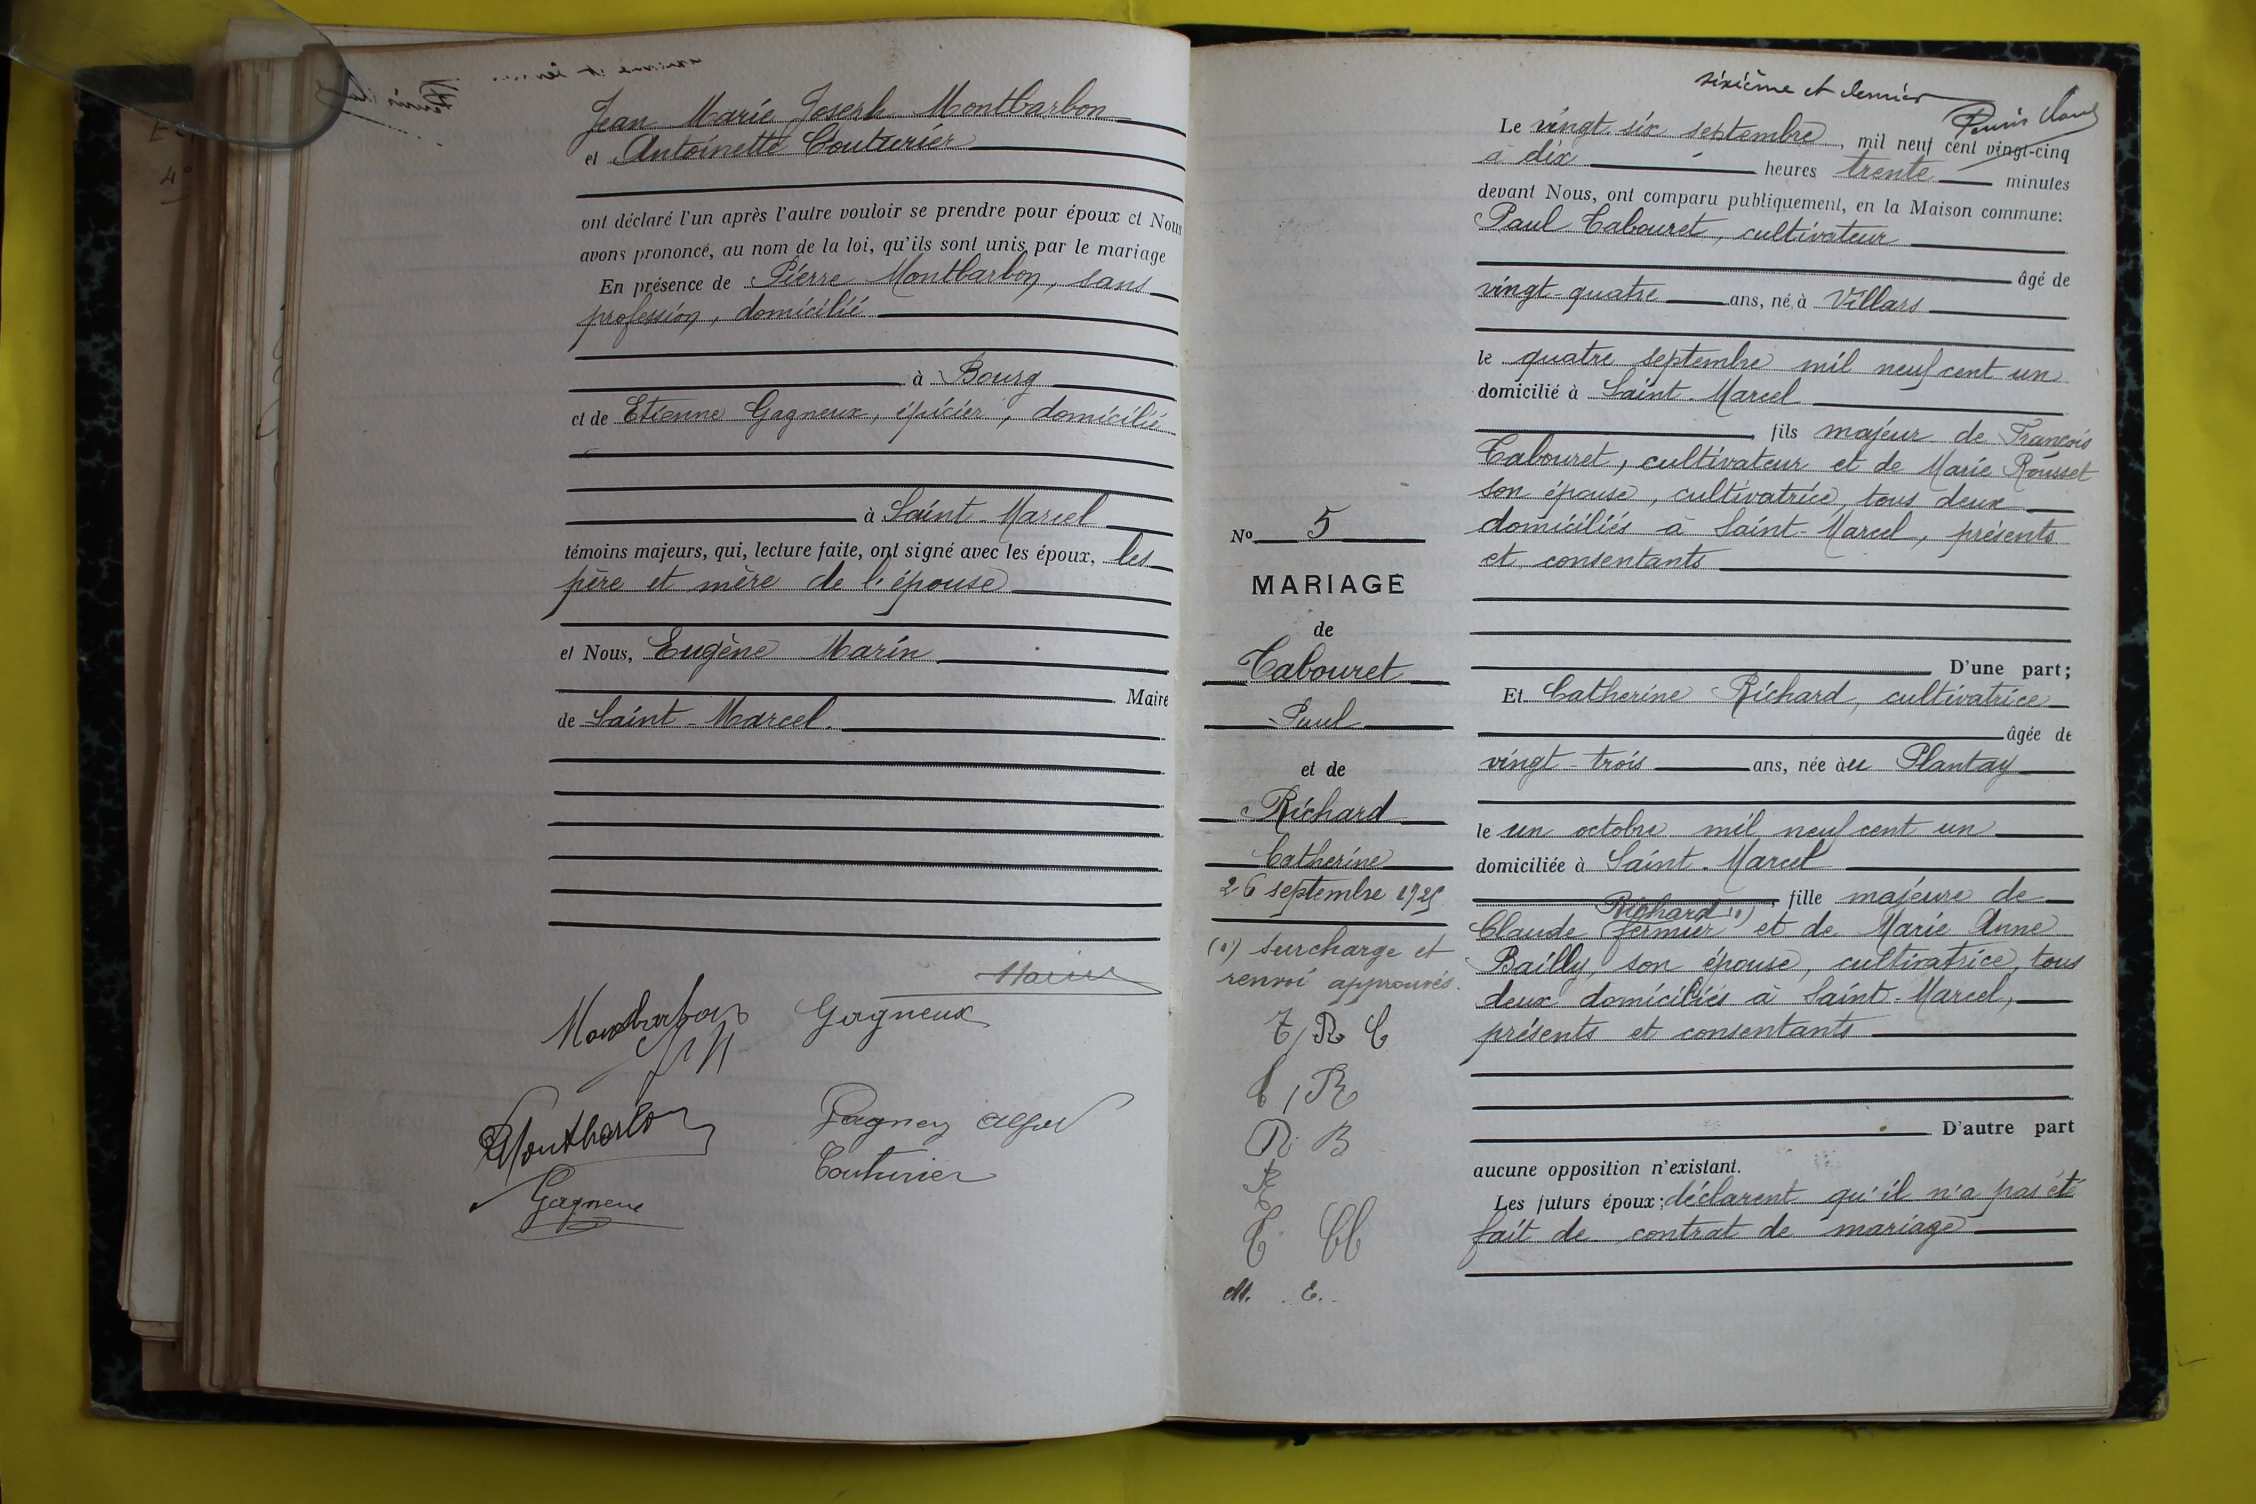 Jean Marie Joseph Montbarbon
et Antoinette Couturier
ont déclaré l'un après l'autre vouloir se prendre pour époux et Nous
avons prononcé, au nom de la loi, qu'ils sont unis par le mariage
En présence de Pierre Montbarbon, sans
profession, domicilié
à Bourg
et de Etienne Gagneux, épicier, domicilié
à Saint-Marcel
témoins majeurs, qui, lecture faite, ont signé avec les époux, les
père et mère de l'épouse
et Nous, Eugène Marin
Maire
de Saint-Marcel.
Marin
Montbarbon Gagneux
Montbarbon
Couturier
Gagneux
sixième et dernier
Le vingt six septembre, mil neuf cent vingt-cinq
à dix heures trente minutes
devant Nous, ont comparu publiquement, en la Maison commune:
Paul Tabouret, cultivateur
âgé de
vingt-quatre ans, né à Villars
le quatre septembre mil neuf cent un
domicilié à Saint-Marcel
fils majeur de François
Tabouret, cultivateur et de Marie Rousset
son épouse, cultivatrice, tous deux
domiciliés à Saint-Marcel, présents
et consentants
D'une part;
Et Catherine Richard, cultivatrice
âgée de
vingt-trois ans, née àu Plantay
le un octobre mil neuf cent un
domiciliée à Saint-Marcel
fille majeure de
Richard (1)
Claude fermier et de Marie Anne
Bailly, son épouse, cultivatrice, tous
deux domiciliés à Saint-Marcel,
présents et consentants
D'autre part
aucune opposition n'existant.
Les futurs époux; déclarent qu'il n'a pas été
fait de contrat de mariage
No 5
MARIAGE
de
Tabouret
Paul
et de
Richard
Catherine
26 septembre 1925
(1) surcharge et
renvoi approuvés.
T, R C
C, R
R B
M. E.